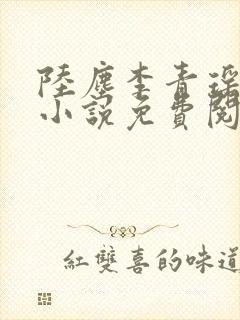 陸塵李青瑤
小說免費閱
紅雙喜的味道